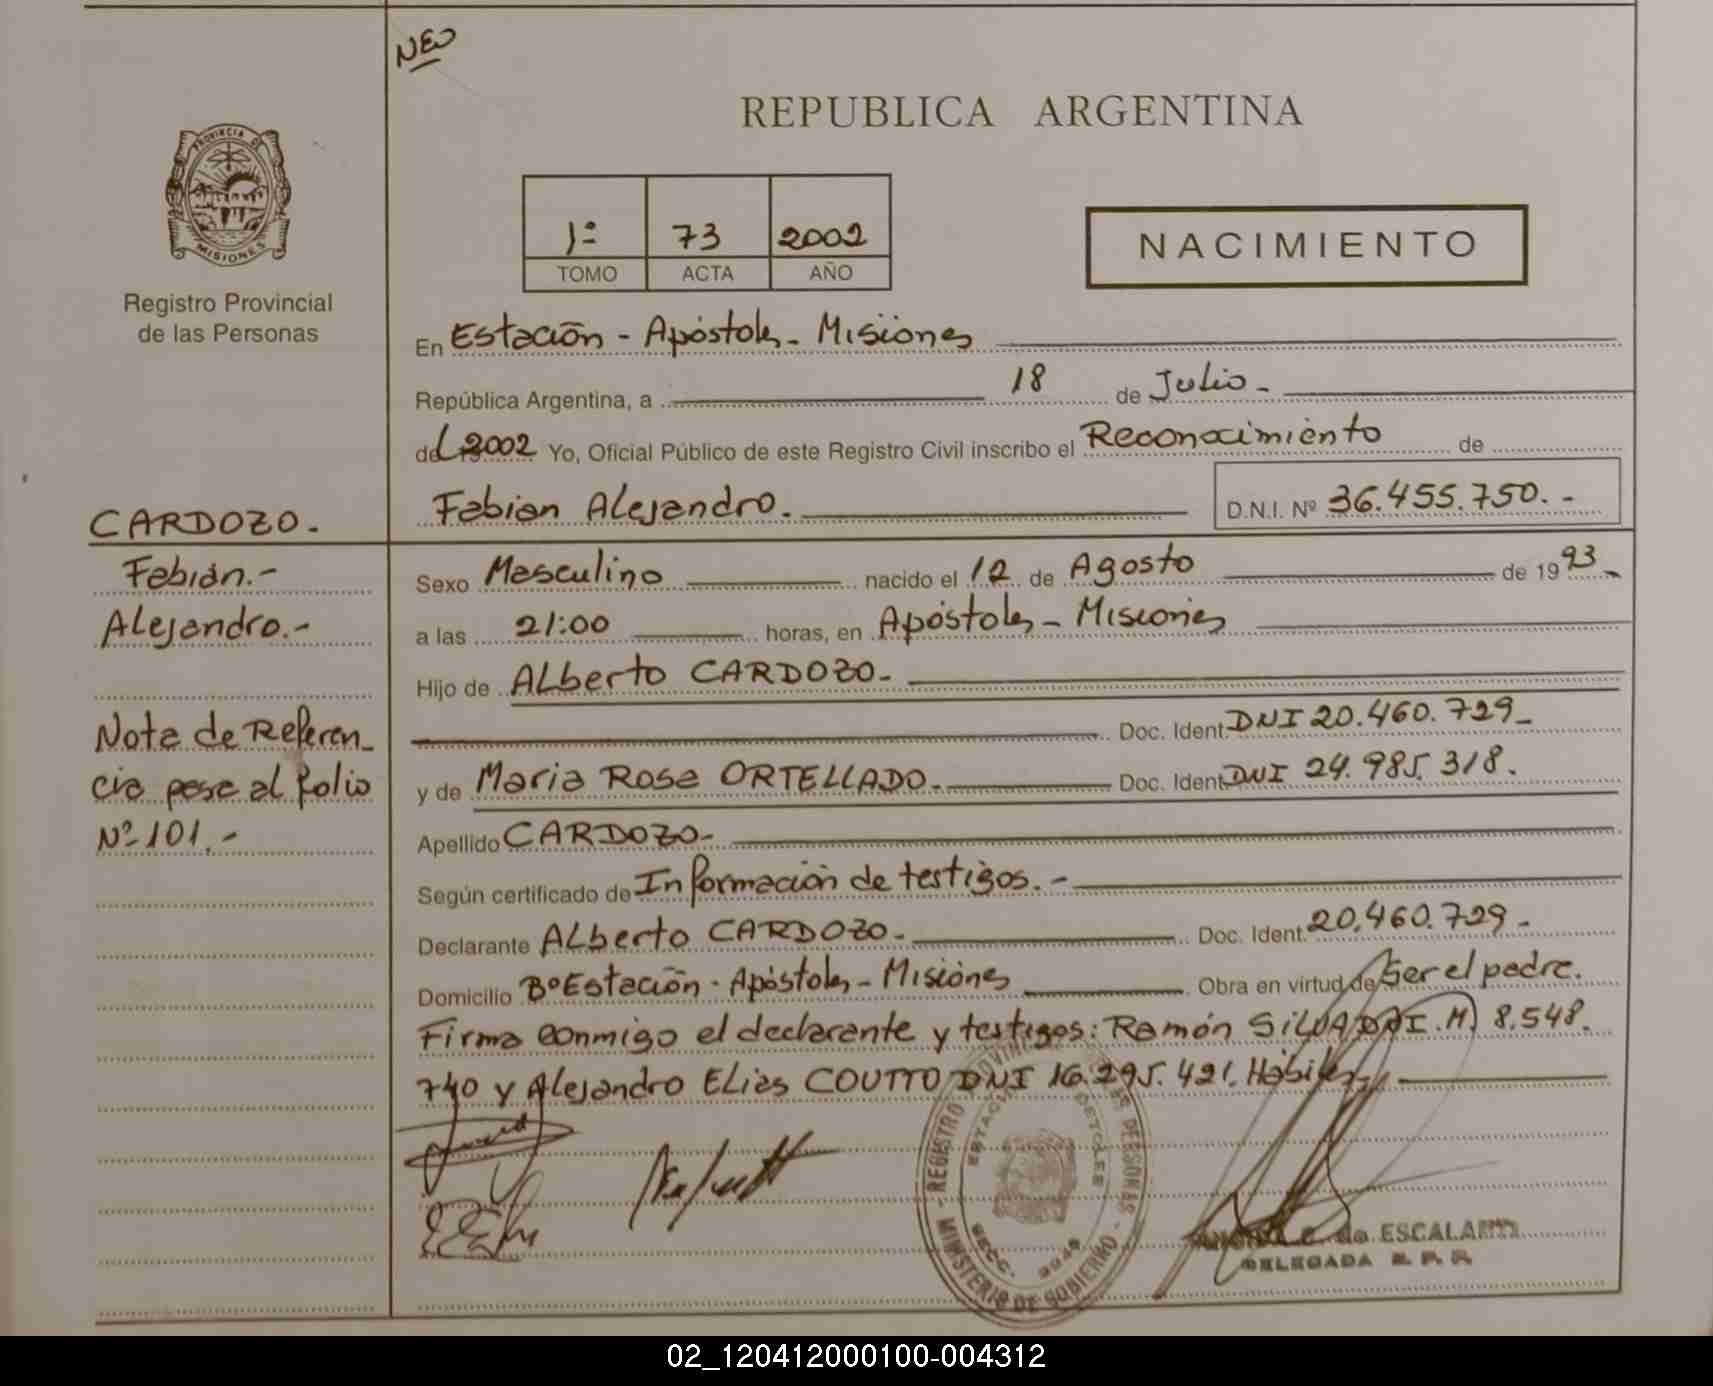 NEO
REPUBLICA ARGENTINA
PROVINCIA DE
MISIONES
1º 73 2002
TOMO ACTA AÑO
NACIMIENTO
Registro Provincial
de las Personas
En Estación - Apóstoles - Misiones
República Argentina, a 18 de Julio -
del 2002 Yo, Oficial Público de este Registro Civil inscribo el Reconocimiento de
CARDOZO.- Fabian Alejandro. D.N.I. Nº 36.455.750.-
Fabián.- Sexo Masculino nacido el 12 de Agosto de 1993.-
Alejandro.- a las 21:00 horas, en Apóstoles - Misiones
Hijo de ALberto CARDOZO.-
Nota de Referen- Doc. Ident. DNI 20.460.729-
cia pasa al folio y de Maria Rosa ORTELLADO.- Doc. Ident. DNI 24.985.318.
Nº 101.- Apellido CARDOZO-
Según certificado de Información de testigos.-
Declarante ALberto CARDOZO.- Doc. Ident. 20.460.729-
Domicilio Bº Estación - Apóstoles - Misiones Obra en virtud de Ser el padre.
Firma conmigo el declarante y testigos: Ramón SiLVA DNI. M. 8.548.
740 y Alejandro Elias COUTTO DNI 16.295.421. Hábiles
REGISTRO PROVINCIAL DE LAS PERSONAS
MINISTERIO DE GOBIERNO
ESTACION APOSTOLES
SECC.
de ESCALANTE
DELEGADA R. P. P.
02_120412000100-004312